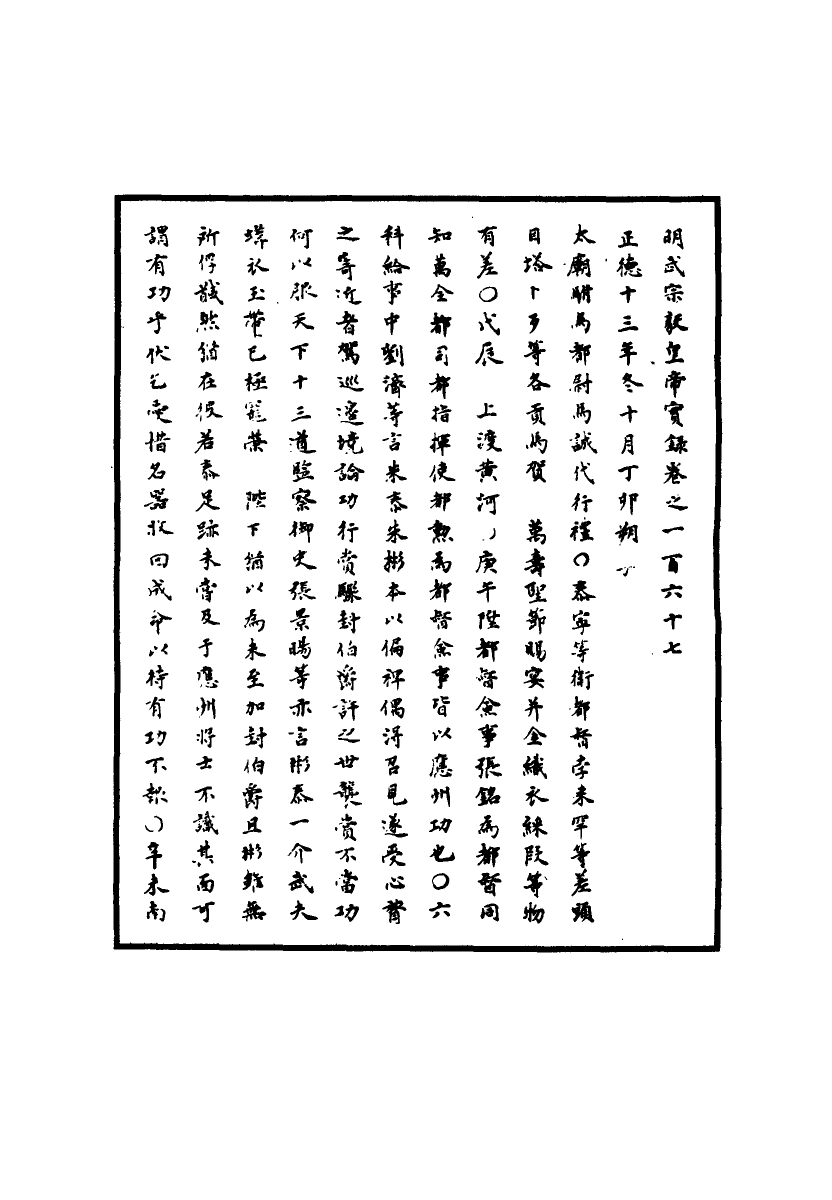 明武宗毅皇帝實錄卷之一百六十七
正德十三年冬十月丁卯朔
太廟駙馬都尉馬誠代行禮〇泰寧等衛都督孛来罕等差頭
目塔卜歹等各貢馬賀　萬壽聖節賜宴并金織衣綵段等物
有差〇戊辰　上渡黄河〇庚午陞都督僉事張銘為都督同
知萬全都司都指揮使都勲為都督僉事皆以應州功也〇六
科給事中劉濟等言朱泰朱彬本以偏裨偶淂召見遂受心膂
之寄近者駕巡邉境論功行賞驟封伯爵許之世襲賞不當功
何以張天下十三道監察御史張景暘等亦言彬泰一介武夫
蟒衣玉帶已極寵榮　陛下猶以為未至加封伯爵且彬雖無
所俘馘然猶在彼若泰足跡未嘗及于應州将士不識其面可
謂有功乎伏乞愛惜名器收回成命以待有功不報〇辛未南